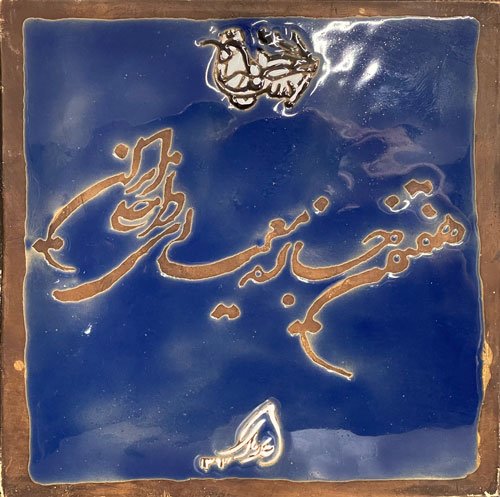 هفتمین جایزه معماری داخلی ایران